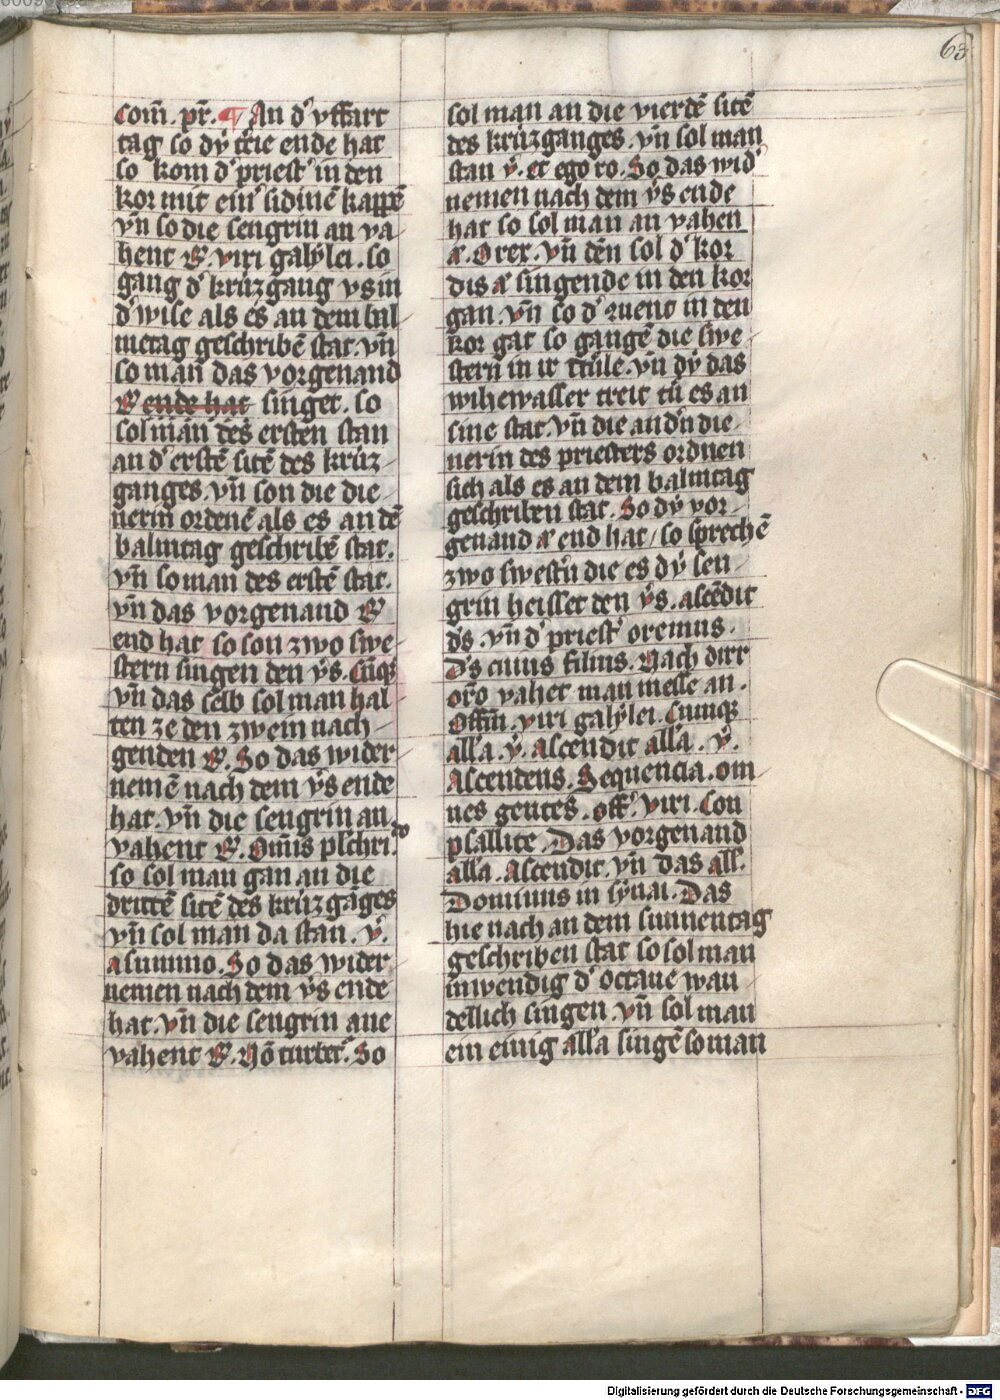 63
Com̄. pr̄. ¶ An d᷑ vffart
tag so dÿ tcie ende hat
so kom d᷑ priest᷑ in den
kor mit ein᷑ sidinē kappē
vn̄ so die sengrin an va
hent R̶. viri galÿlei. so
gang d᷑ krúzgang vs in
d᷑ wise als es an dem bal
metag geschribē stat. vn̄
so man das vorgenand
R̶ ende hat singet. so
sol man des ersten stan
an d᷑ erstē sitē des krúz
ganges. vn̄ son die die
nerin ordenē als es an dē
balmtag geschribē stat.
vn̄ so man des erstē stat.
vn̄ das vorgenand R̶
end hat so son zwo swe
stern singen den v̄s. Cūq᷑
vn̄ das selb sol man hal
ten ze den zwein nach
genden R̶. So das wider
nemē nach dem v̄s ende
hat. vn̄ die sengrin an
vahent R̶. Om̄is pl̄chri.do
so sol man gan an die
drittē sitē des krúzgāges
vn̄ sol man da stan. v̄.
a summo. So das wider
nemen nach dem v̄s ende
hat. vn̄ die sengrin ane
vahent R̶. Nō turbet᷑. So
sol man an die vierdē sitē
des krúzganges. vn̄ sol man
stan v̄. et ego ro. So das wid᷑
nemen nach dem v̄s ende
hat so sol man an vahen
a᷑. O rex. vn̄ den sol d᷑ kor
dis a᷑ singende in den kor
gan. vn̄ so d᷑ 9uent in den
kor gat so gangē die swe
stern in ir stu̇le. vn̄ dÿ das
wihewasser treit tu̇ es an
sine stat. vn̄ die and᷑n die
nerin des priesters ordnen
sich als es an dem balmtag
geschriben stat. So dÿ vor
genand a᷑ end hat / so sprechē
zwo swest᷑n die es dÿ sen
grin heisset den v̄s. ascēdit
d̄s. vn̄ d᷑ priest᷑ oremus.
D̄s cuius filius. Nach dirr
orō vahet man messe an.
Offm̄. viri galÿlei. Cumq᷑
all̄a. v̄. ascendit all̄a. v̄.
Ascendens. Sequencia. om
nes gentes. off᷑. viri. Con
psallite. Das vorgenand
all̄a. Ascendit. vn̄ das all̄.
Dominus in sÿnai. Das
hie nach an dem sunnentag
geschriben stat so sol man
inwendig d᷑ octaue wan
dellich singen. vn̄ sol man
ein einig all̄a singē so man
Digitalisierung gefördert durch die Deutsche Forschungsgemeinschaft - DFG